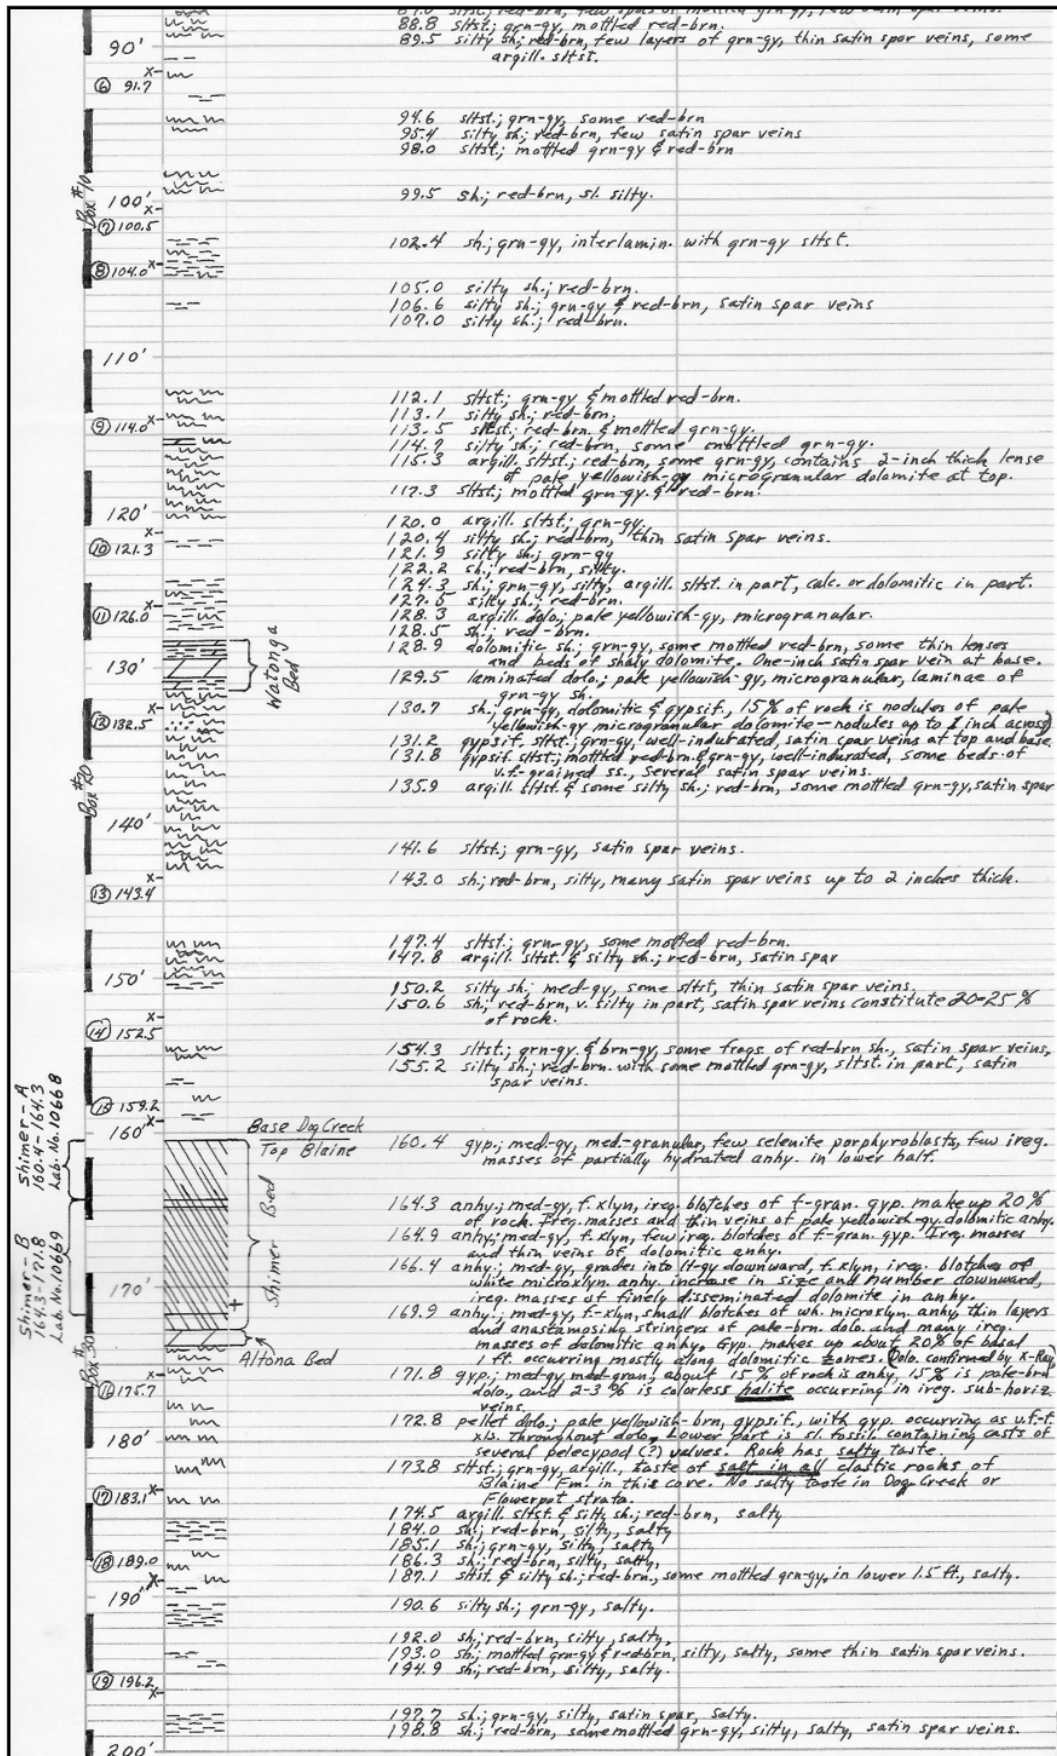 88.8 sltst.; grn-gy, mottled red-brn.
90' 89.5 silty sh.; red-brn, few layers of grn-gy, thin satin spar veins, some
argill. sltst.
⑥ 91.7
94.6 sltst.; grn-gy, some red-brn
95.4 silty sh.; red-brn, few satin spar veins
98.0 sltst.; mottled grn-gy & red-brn
Box #10
100' 99.5 sh.; red-brn, sl. silty.
⑦ 100.5
102.4 sh.; grn-gy, interlamin. with grn-gy sltst.
⑧ 104.0
105.0 silty sh.; red-brn.
106.6 silty sh.; grn-gy & red-brn, satin spar veins
107.0 silty sh.; red-brn.
110'
112.1 sltst.; grn-gy & mottled red-brn.
113.1 silty sh.; red-brn.
⑨ 114.0 113.5 sltst.; red-brn. & mottled grn-gy.
114.7 silty sh.; red-brn, some mottled grn-gy.
115.3 argill. sltst.; red-brn, some grn-gy, contains 2-inch thick lense
of pale yellowish-gy microgranular dolomite at top.
117.3 sltst.; mottled grn-gy. & red-brn.
120' 120.0 argill. sltst.; grn-gy.
⑩ 121.3 120.4 silty sh.; red-brn, thin satin spar veins.
121.9 silty sh.; grn-gy
122.2 sh.; red-brn, silty.
124.3 sh.; grn-gy, silty, argill. sltst. in part, calc. or dolomitic in part.
127.5 silty sh.; red-brn.
⑪ 126.0 128.3 argill. dolo.; pale yellowish-gy, microgranular.
128.5 sh.; red-brn.
Watonga Bed
128.9 dolomitic sh.; grn-gy, some mottled red-brn, some thin lenses
130' and beds of shaly dolomite. One-inch satin spar vein at base.
129.5 laminated dolo.; pale yellowish-gy, microgranular, laminae of
grn-gy sh.
⑫ 132.5 130.7 sh.; grn-gy, dolomitic & gypsif., 15% of rock is nodules of pale
yellowish-gy microgranular dolomite — nodules up to 1 inch across)
131.2 gypsif. sltst.; grn-gy, well-indurated, satin spar veins at top and base.
131.8 gypsif. sltst.; mottled red-brn. & grn-gy, well-indurated, some beds of
v.f.-grained ss., several satin spar veins.
Box #20
135.9 argill. sltst. & some silty sh.; red-brn, some mottled grn-gy, satin spar
140'
141.6 sltst.; grn-gy, satin spar veins.
⑬ 143.4 143.0 sh.; red-brn, silty, many satin spar veins up to 2 inches thick.
147.4 sltst.; grn-gy, some mottled red-brn.
147.8 argill. sltst. & silty sh.; red-brn, satin spar
150' 150.2 silty sh.; med-gy, some sltst, thin satin spar veins.
150.6 sh.; red-brn, v. silty in part, satin spar veins constitute 20-25 %
of rock.
⑭ 152.5
154.3 sltst.; grn-gy. & brn-gy, some frags of red-brn sh., satin spar veins,
155.2 silty sh.; red-brn. with some mottled grn-gy, sltst. in part, satin
spar veins.
⑮ 159.2
160' Base Dog Creek
Top Blaine
Shimer-A
160.4-164.3
Lab. No. 10668
160.4 gyp.; med.-gy, med.-granular, few selenite porphyroblasts, few ireg.
masses of partially hydrated anhy. in lower half.
Shimer Bed
164.3 anhy.; med-gy, f. xlyn, ireg. blotches of f-gran. gyp. make up 20 %
of rock. Ireg. masses and thin veins of pale yellowish-gy dolomitic anhy.
164.9 anhy.; med-gy, f. xlyn, few ireg. blotches of f-gran. gyp. Ireg. masses
and thin veins of dolomitic anhy.
Shimer-B
164.3-171.8
Lab. No. 10669
166.4 anhy.; med-gy, grades into lt-gy downward, f. xlyn, ireg. blotches of
170' white microxlyn. anhy. increase in size and number downward,
ireg. masses of finely disseminated dolomite in anhy.
169.9 anhy.; med-gy, f.-xlyn, small blotches of wh. microxlyn. anhy, thin layers
and anastamosing stringers of pale-brn. dolo. and many ireg.
masses of dolomitic anhy. Gyp. makes up about 20% of basal
1 ft. occurring mostly along dolomitic zones. (Dolo. confirmed by X-Ray)
Altona Bed
Box #30
⑯ 175.7 171.8 gyp.; med-gy, med-gran, about 15 % of rock is anhy, 15 % is pale-brn
dolo., and 2-3 % is colorless halite occurring in ireg. sub-horiz.
veins.
172.8 pellet dolo.; pale yellowish-brn, gypsif., with gyp. occurring as v.f.-f.
180' xls. throughout dolo. Lower part is sl. fossil. containing casts of
several pelecypod (?) valves. Rock has salty taste.
173.8 sltst.; grn-gy, argill., taste of salt in all clastic rocks of
Blaine Fm. in this core. No salty taste in Dog Creek or
⑰ 183.1 Flowerpot strata.
174.5 argill. sltst. & silty sh.; red-brn, salty
184.0 sh.; red-brn, silty, salty
185.1 sh.; grn-gy, silty, salty
⑱ 189.0 186.3 sh.; red-brn, silty, salty,
187.1 sltst. & silty sh.; red-brn., some mottled grn-gy, in lower 1.5 ft., salty.
190' 190.6 silty sh.; grn-gy, salty.
192.0 sh.; red-brn, silty, salty,
193.0 sh.; mottled grn-gy & red-brn, silty, salty, some thin satin spar veins.
194.9 sh.; red-brn, silty, salty.
⑲ 196.2
197.7 sh.; grn-gy, silty, satin spar, salty.
198.8 sh.; red-brn, some mottled grn-gy, silty, salty, satin spar veins.
200'